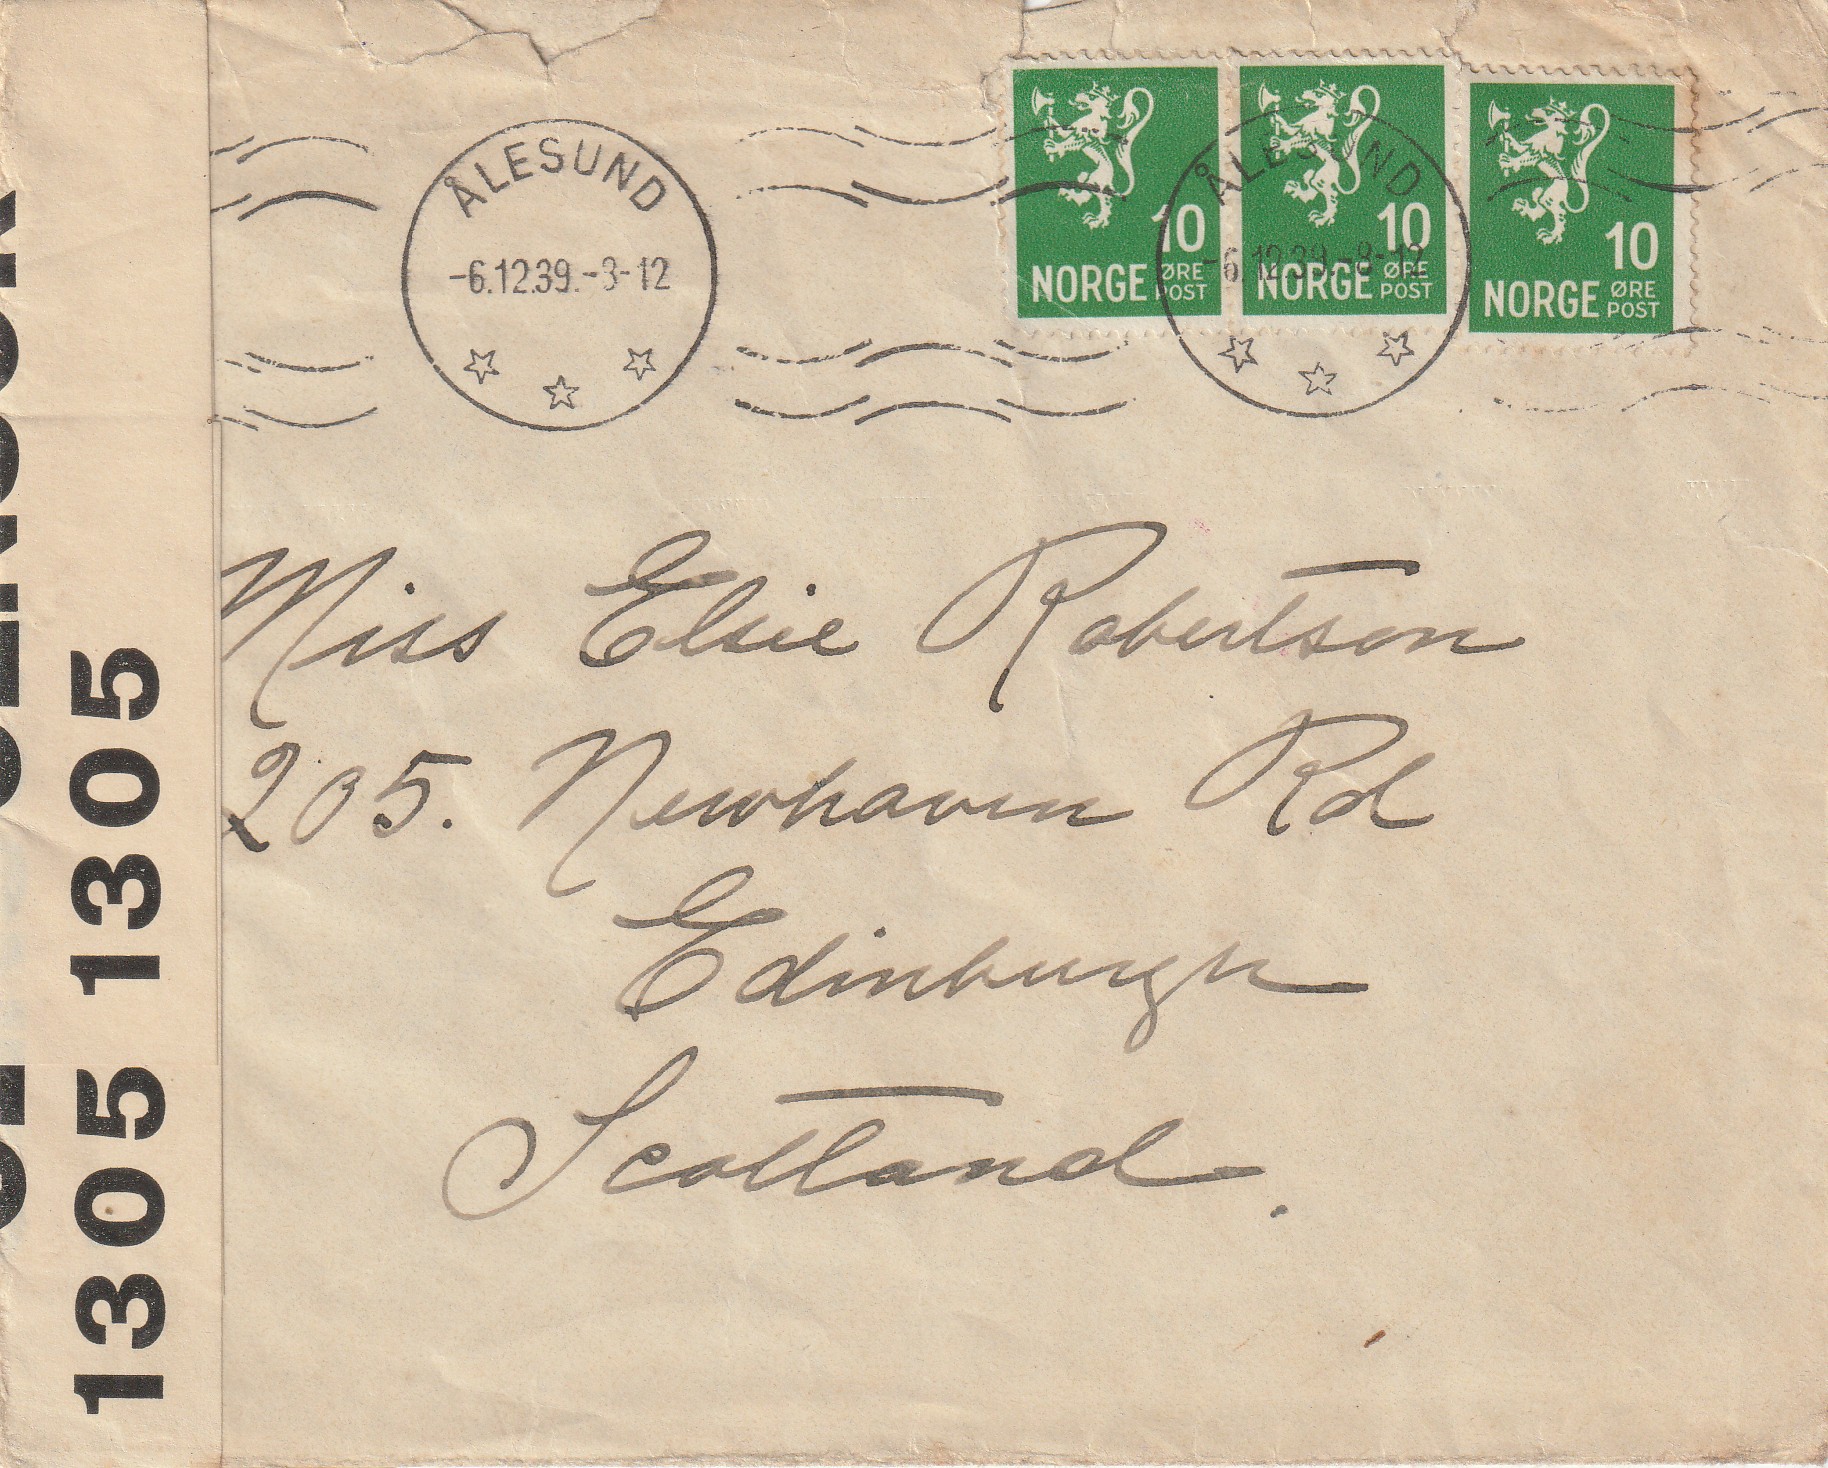 ÅLESUND
-6.12.39.-8-12
10
NORGE ØRE
POST
ÅLESUND
-6.12.39.-8-12
10
NORGE ØRE
POST
10
NORGE ØRE
POST
Miss Elsie Robertson
205. Newhaven Rd
Edinburgh
Scotland.
1305 1305